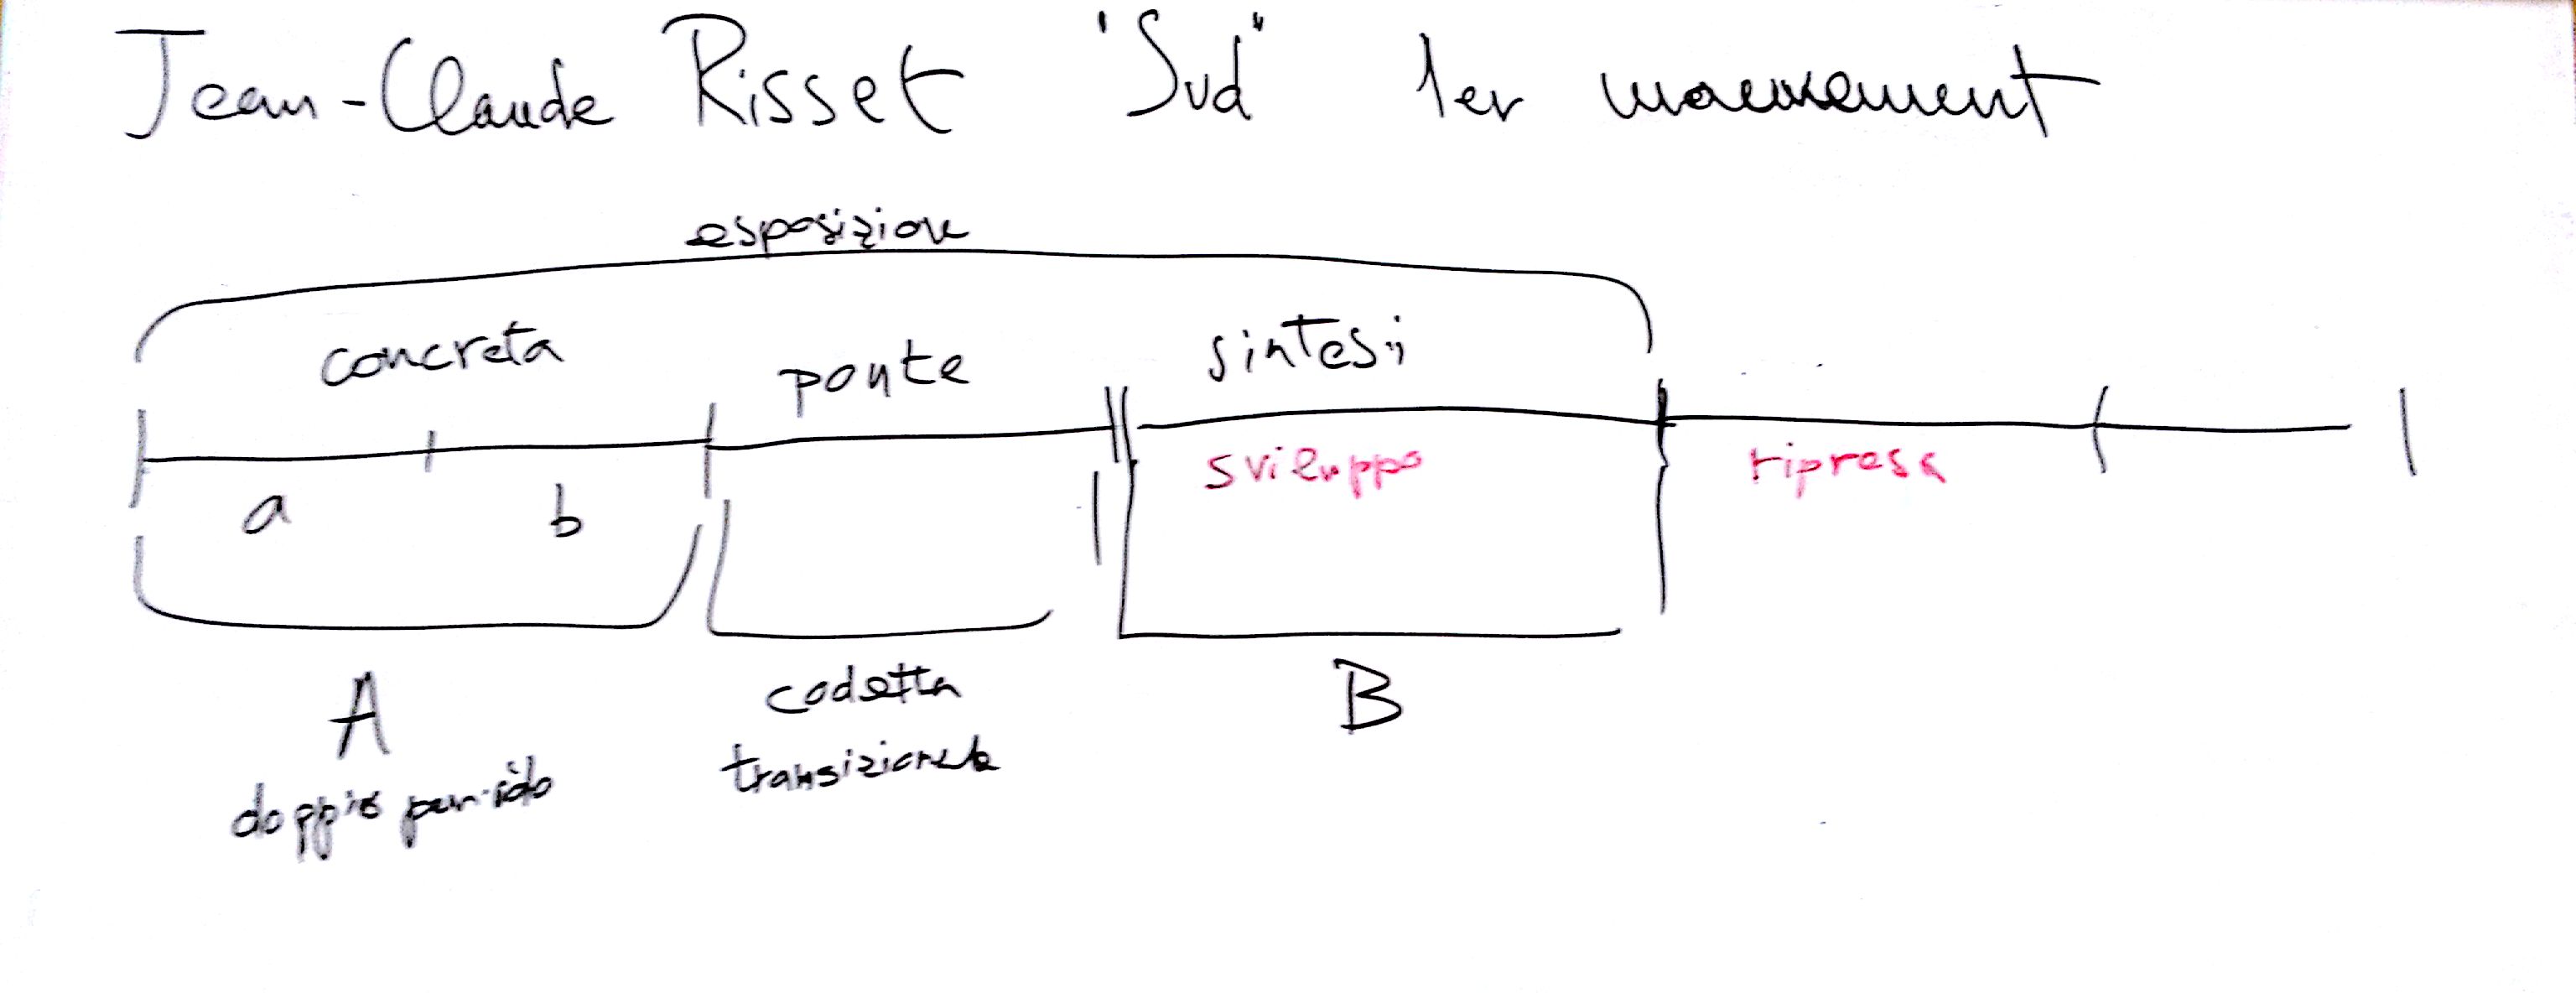 Jean-Claude Risset "Sud" 1er mouvement
esposizione
concreta ponte sintesi
sviluppo ripresa
a b
A codetta B
doppio periodo transizionale